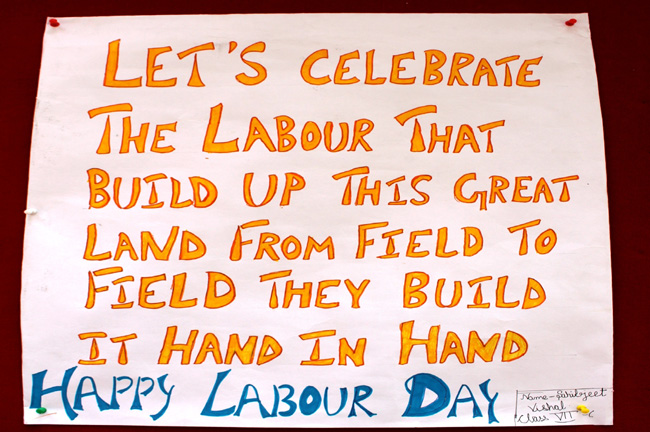 LET'S CELEBRATE
THE LABOUR THAT
BUILD UP THIS GREAT
LAND FROM FIELD TO
FIELD THEY BUILD
IT HAND IN HAND
HAPPY LABOUR DAY
Name-
Vishal
Class VII - C